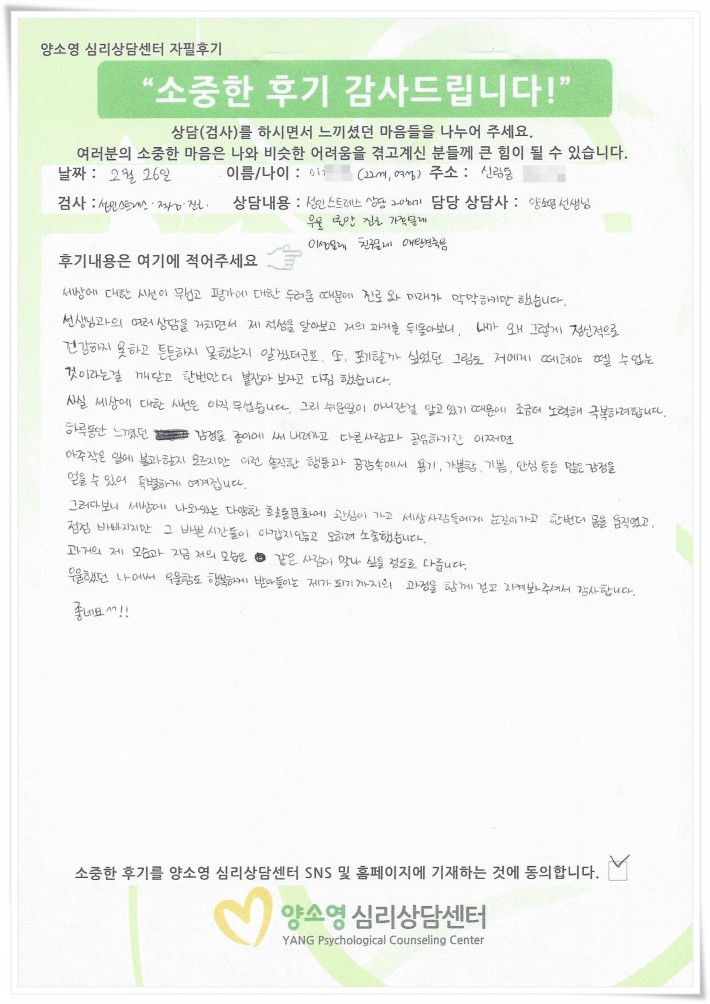 양소영 심리상담센터 자필후기
“소중한 후기 감사드립니다!”
상담(검사)를 하시면서 느끼셨던 마음들을 나누어 주세요.
여러분의 소중한 마음은 나와 비슷한 어려움을 겪고계신 분들께 큰 힘이 될 수 있습니다.
날짜 : 2월 26일 이름/나이 : 이 (22세, 여성) 주소 : 신림동
검사 : 성인스트레스 · 적성 · 진로. 상담내용 : 성인스트레스 상담 20회기 담당 상담사 : 양소영 선생님
우울 불안 진로 가족문제
이성문제 친구문제 애완견죽음
후기내용은 여기에 적어주세요
세상에 대한 시선이 무섭고 평가에 대한 두려움 때문에 진로와 미래가 막막하기만 했습니다.
선생님과의 여러상담을 거치면서 제 적성을 알아보고 저의 과거를 뒤돌아보니, 내가 왜 그렇게 정신적으로
건강하지 못하고 튼튼하지 못했는지 알겠더군요. 또, 포기할까 싶었던 그림도 저에게 떼려야 뗄 수 없는
것이라는걸 깨닫고 한번만더 붙잡아 보자고 다짐 했습니다.
사실 세상에 대한 시선은 아직 무섭습니다. 그리 쉬운일이 아니란걸 알고 있기 때문에 조금더 노력해 극복하려합니다.
하루동안 느꼈던 감정을 종이에 써 내려가고 다른사람과 공유하기란 어쩌면
아주작은 일에 불과할지 모르지만 이런 솔직한 행동과 공감속에서 용기, 가뿐함, 기쁨, 안심 등등 많은 감정을
얻을 수 있어 특별하게 여겨집니다.
그러다보니 세상에 나와있는 다양한 활동문화에 관심이 가고 세상사람들에게 눈길이가고 한번더 몸을 움직였고,
점점 바빠지지만 그 바쁜 시간들이 아깝지않고 오히려 소중했습니다.
과거의 제 모습과 지금 저의 모습은 같은 사람이 맞나 싶을 정도로 다릅니다.
우울했던 나에서 우울함도 행복하게 받아들이는 제가 되기까지의 과정을 함께 걷고 지켜봐주셔서 감사합니다.
좋네요^^!!
소중한 후기를 양소영 심리상담센터 SNS 및 홈페이지에 기재하는 것에 동의합니다.
양소영 심리상담센터
YANG Psychological Counseling Center